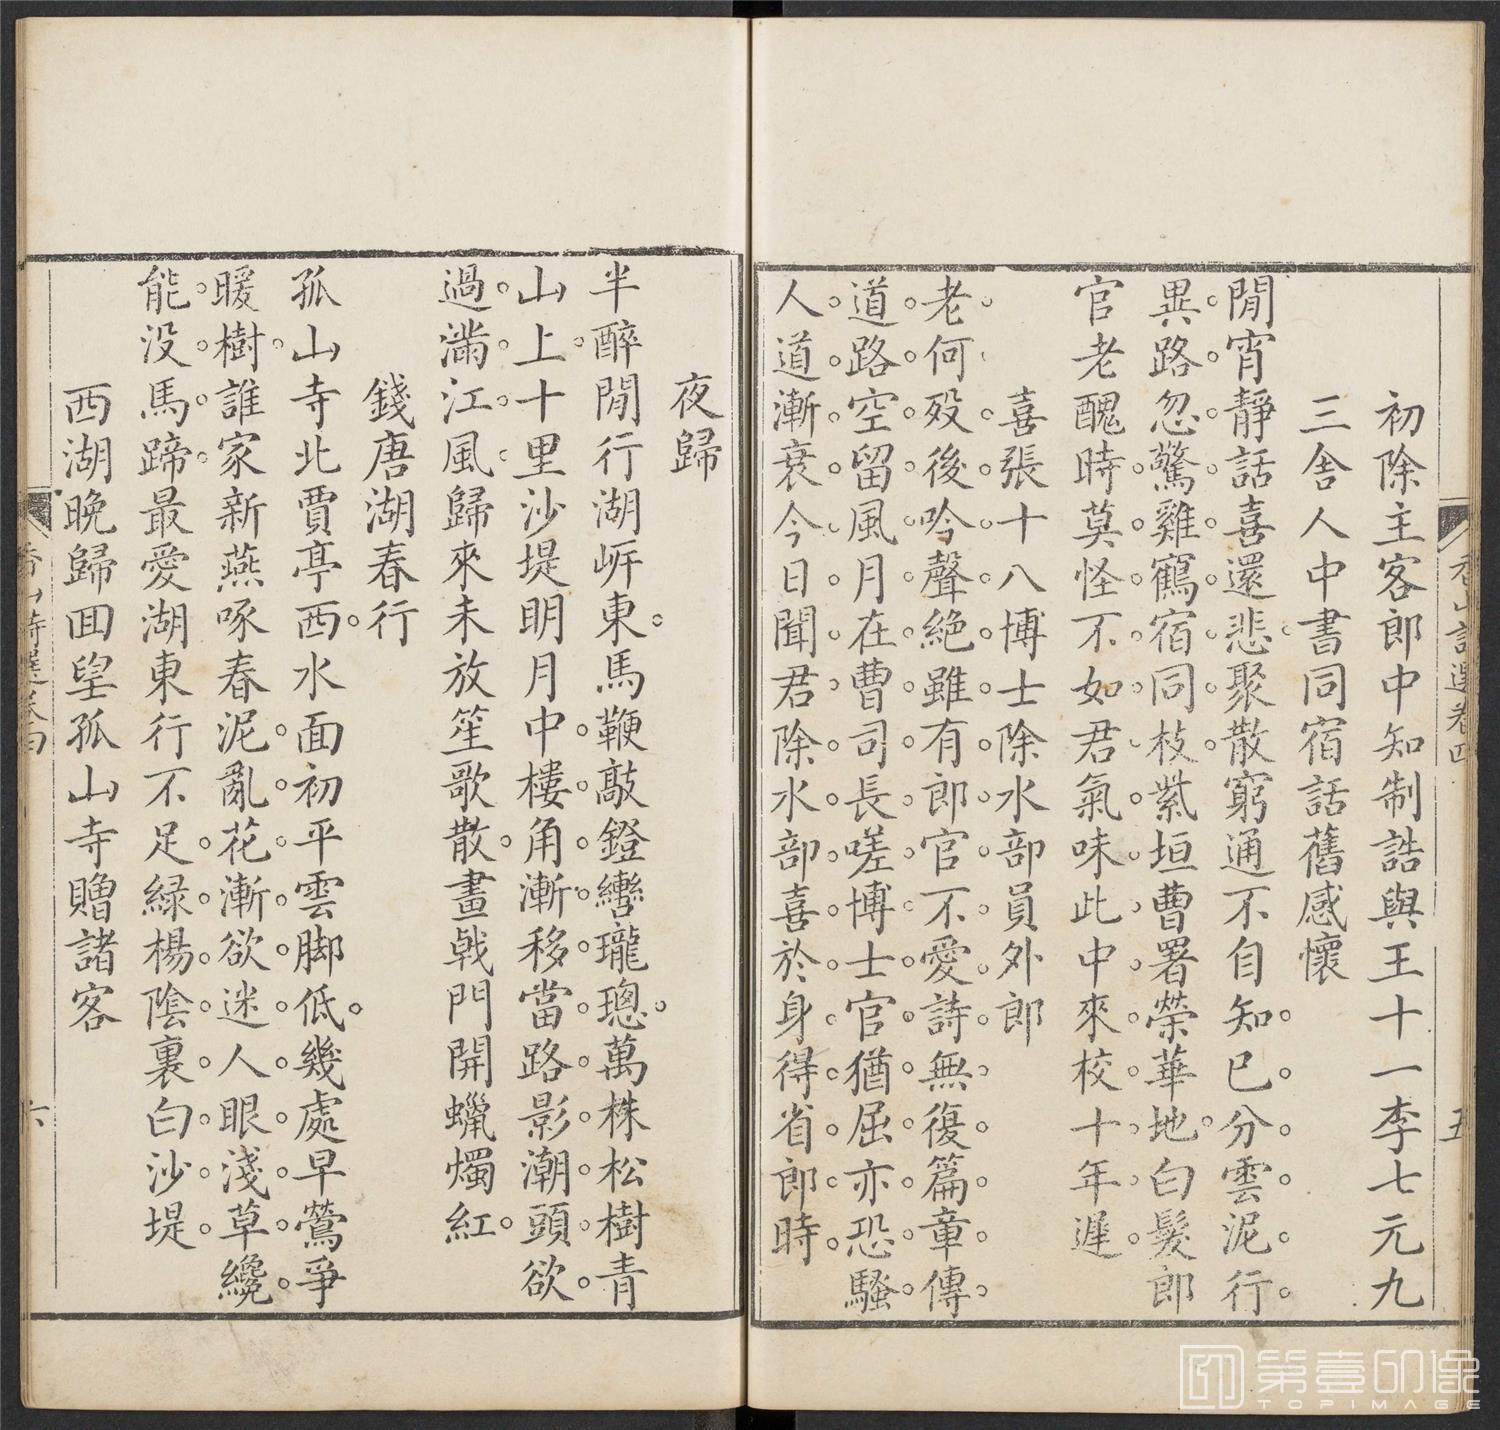 初除主客郎中知制誥與王十一李七元九
三舍人中書同宿話舊感懷
閒宵靜話喜還悲聚散窮通不自知已分雲泥行
異路忽驚雞鶴宿同枝紫垣曹署榮華地白髮郎
官老醜時莫怪不如君氣味此中來校十年遲
喜張十八博士除水部員外郎
老何歿後吟聲絕雖有郎官不愛詩無復篇章傳
道路空留風月在曹司長嗟博士官猶屈亦恐騷
人道漸衰今日聞君除水部喜於身得省郎時
香山詩選卷四
五
夜歸
半醉閒行湖岍東馬鞭敲鐙轡瓏璁萬株松樹青
山上十里沙堤明月中樓角漸移當路影潮頭欲
過滿江風歸來未放笙歌散畫戟門開蠟燭紅
錢唐湖春行
孤山寺北賈亭西水面初平雲脚低幾處早鶯爭
暖樹誰家新燕啄春泥亂花漸欲迷人眼淺草纔
能没馬蹄最愛湖東行不足緑楊陰裏白沙堤
西湖晚歸囬望孤山寺贈諸客
香山詩選卷四
六
第壹印像
TOPIMAGE